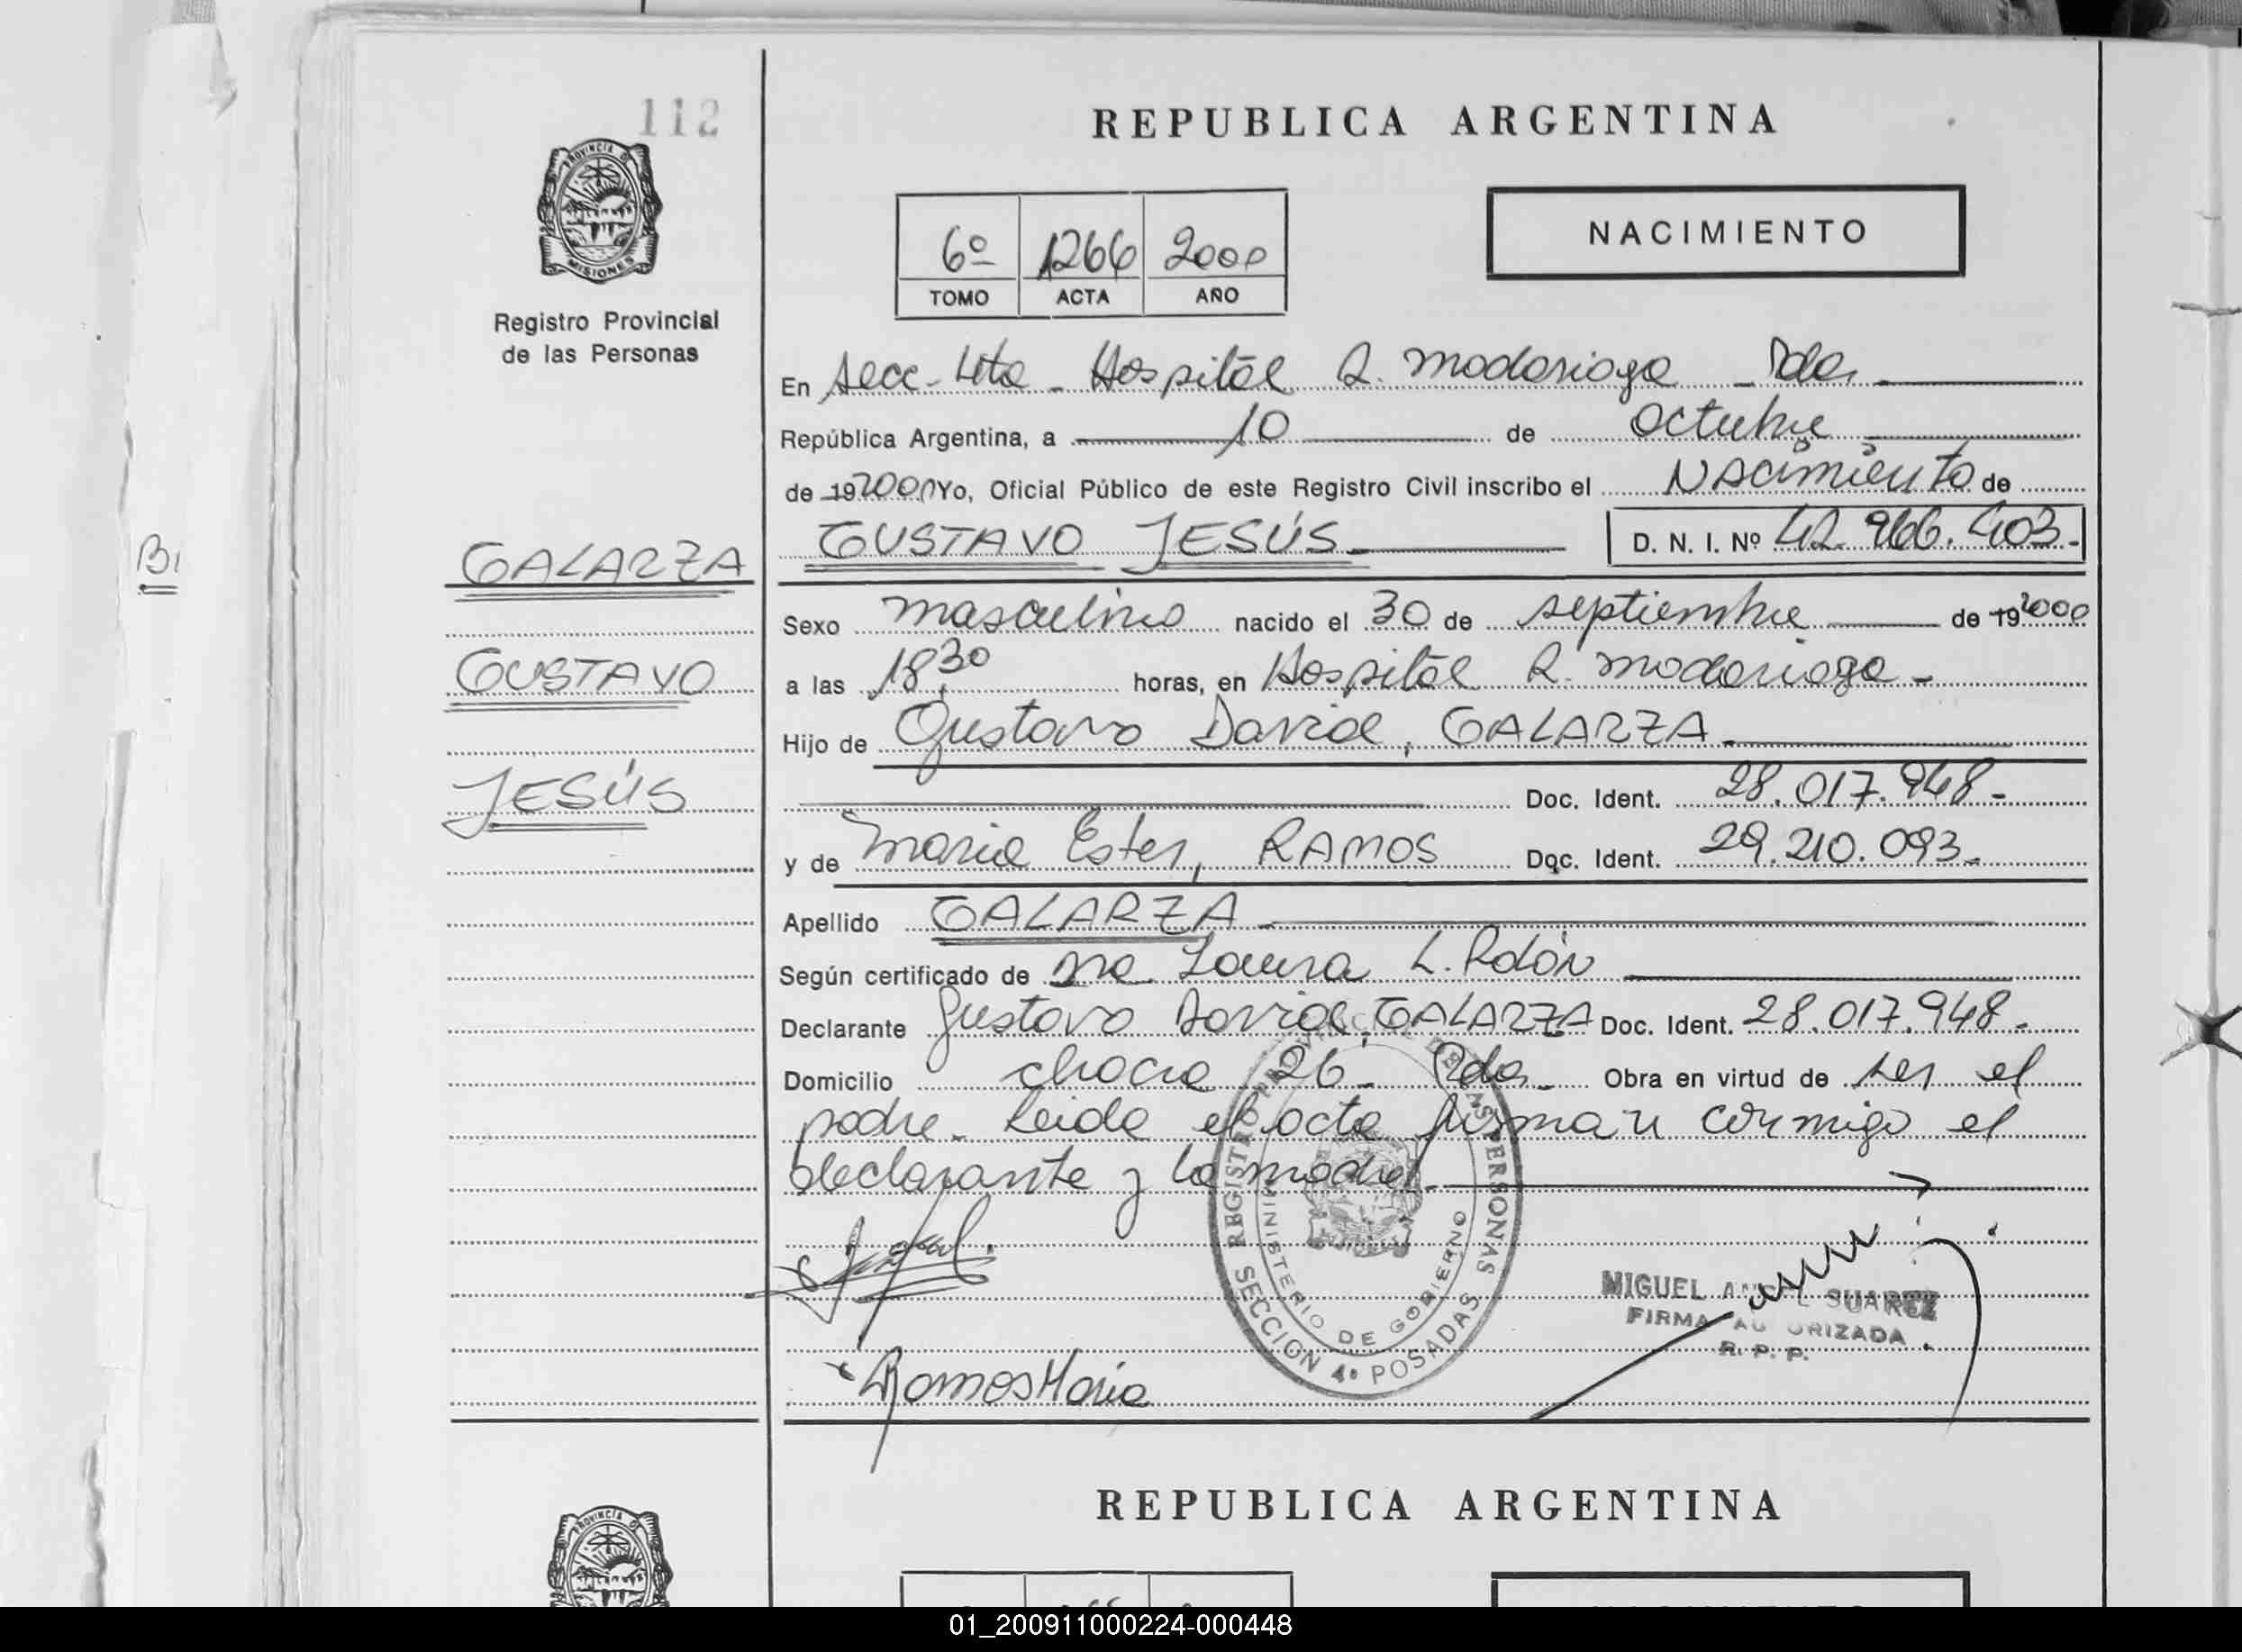 112
REPUBLICA ARGENTINA
PROVINCIA DE
MISIONES
Registro Provincial
de las Personas
6º 1266 2000
TOMO ACTA AÑO
NACIMIENTO
En Secc. 4ta - Hospital R. Madariaga - Pdas.
República Argentina, a 10 de Octubre
de 19 2000 Yo, Oficial Público de este Registro Civil inscribo el NAcimiento de
GUSTAVO JESÚS.
D. N. I. Nº 42.966.403.-
B1
GALARZA
GUSTAVO
JESÚS
Sexo masculino nacido el 30 de septiembre de 19 2000
a las 18,30 horas, en Hospital R. Madariaga -
Hijo de Gustavo David, GALARZA
Doc. Ident. 28.017.948.-
y de Maria Ester, RAMOS Doc. Ident. 29.210.093.-
Apellido GALARZA.-
Según certificado de Dra. Laura L. Rolón
Declarante Gustavo David, GALARZA Doc. Ident. 28.017.948.-
Domicilio chacra 26 - Pdas - Obra en virtud de ser el
padre. Leida el acta firman conmigo el
declarante y la madre.-
REGISTRO PROVINCIAL DE LAS PERSONAS
MINISTERIO DE GOBIERNO
SECCION 4º POSADAS
MIGUEL ANGEL SUAREZ
FIRMA AUTORIZADA
R. P. P.
Ramos Maria
REPUBLICA ARGENTINA
PROVINCIA DE
01_200911000224-000448